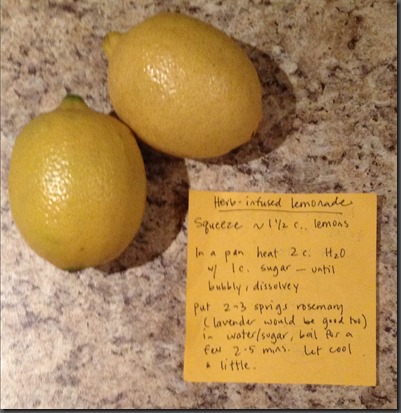 Herb-infused lemonade
Squeeze ~ 1 1/2 c. lemons
In a pan heat 2 c. H2O
w/ 1 c. sugar – until
bubbly, dissolvey
Put 2-3 sprigs rosemary
(lavender would be good too)
in water/sugar, boil for a
few 2-5 mins. Let cool
a little.